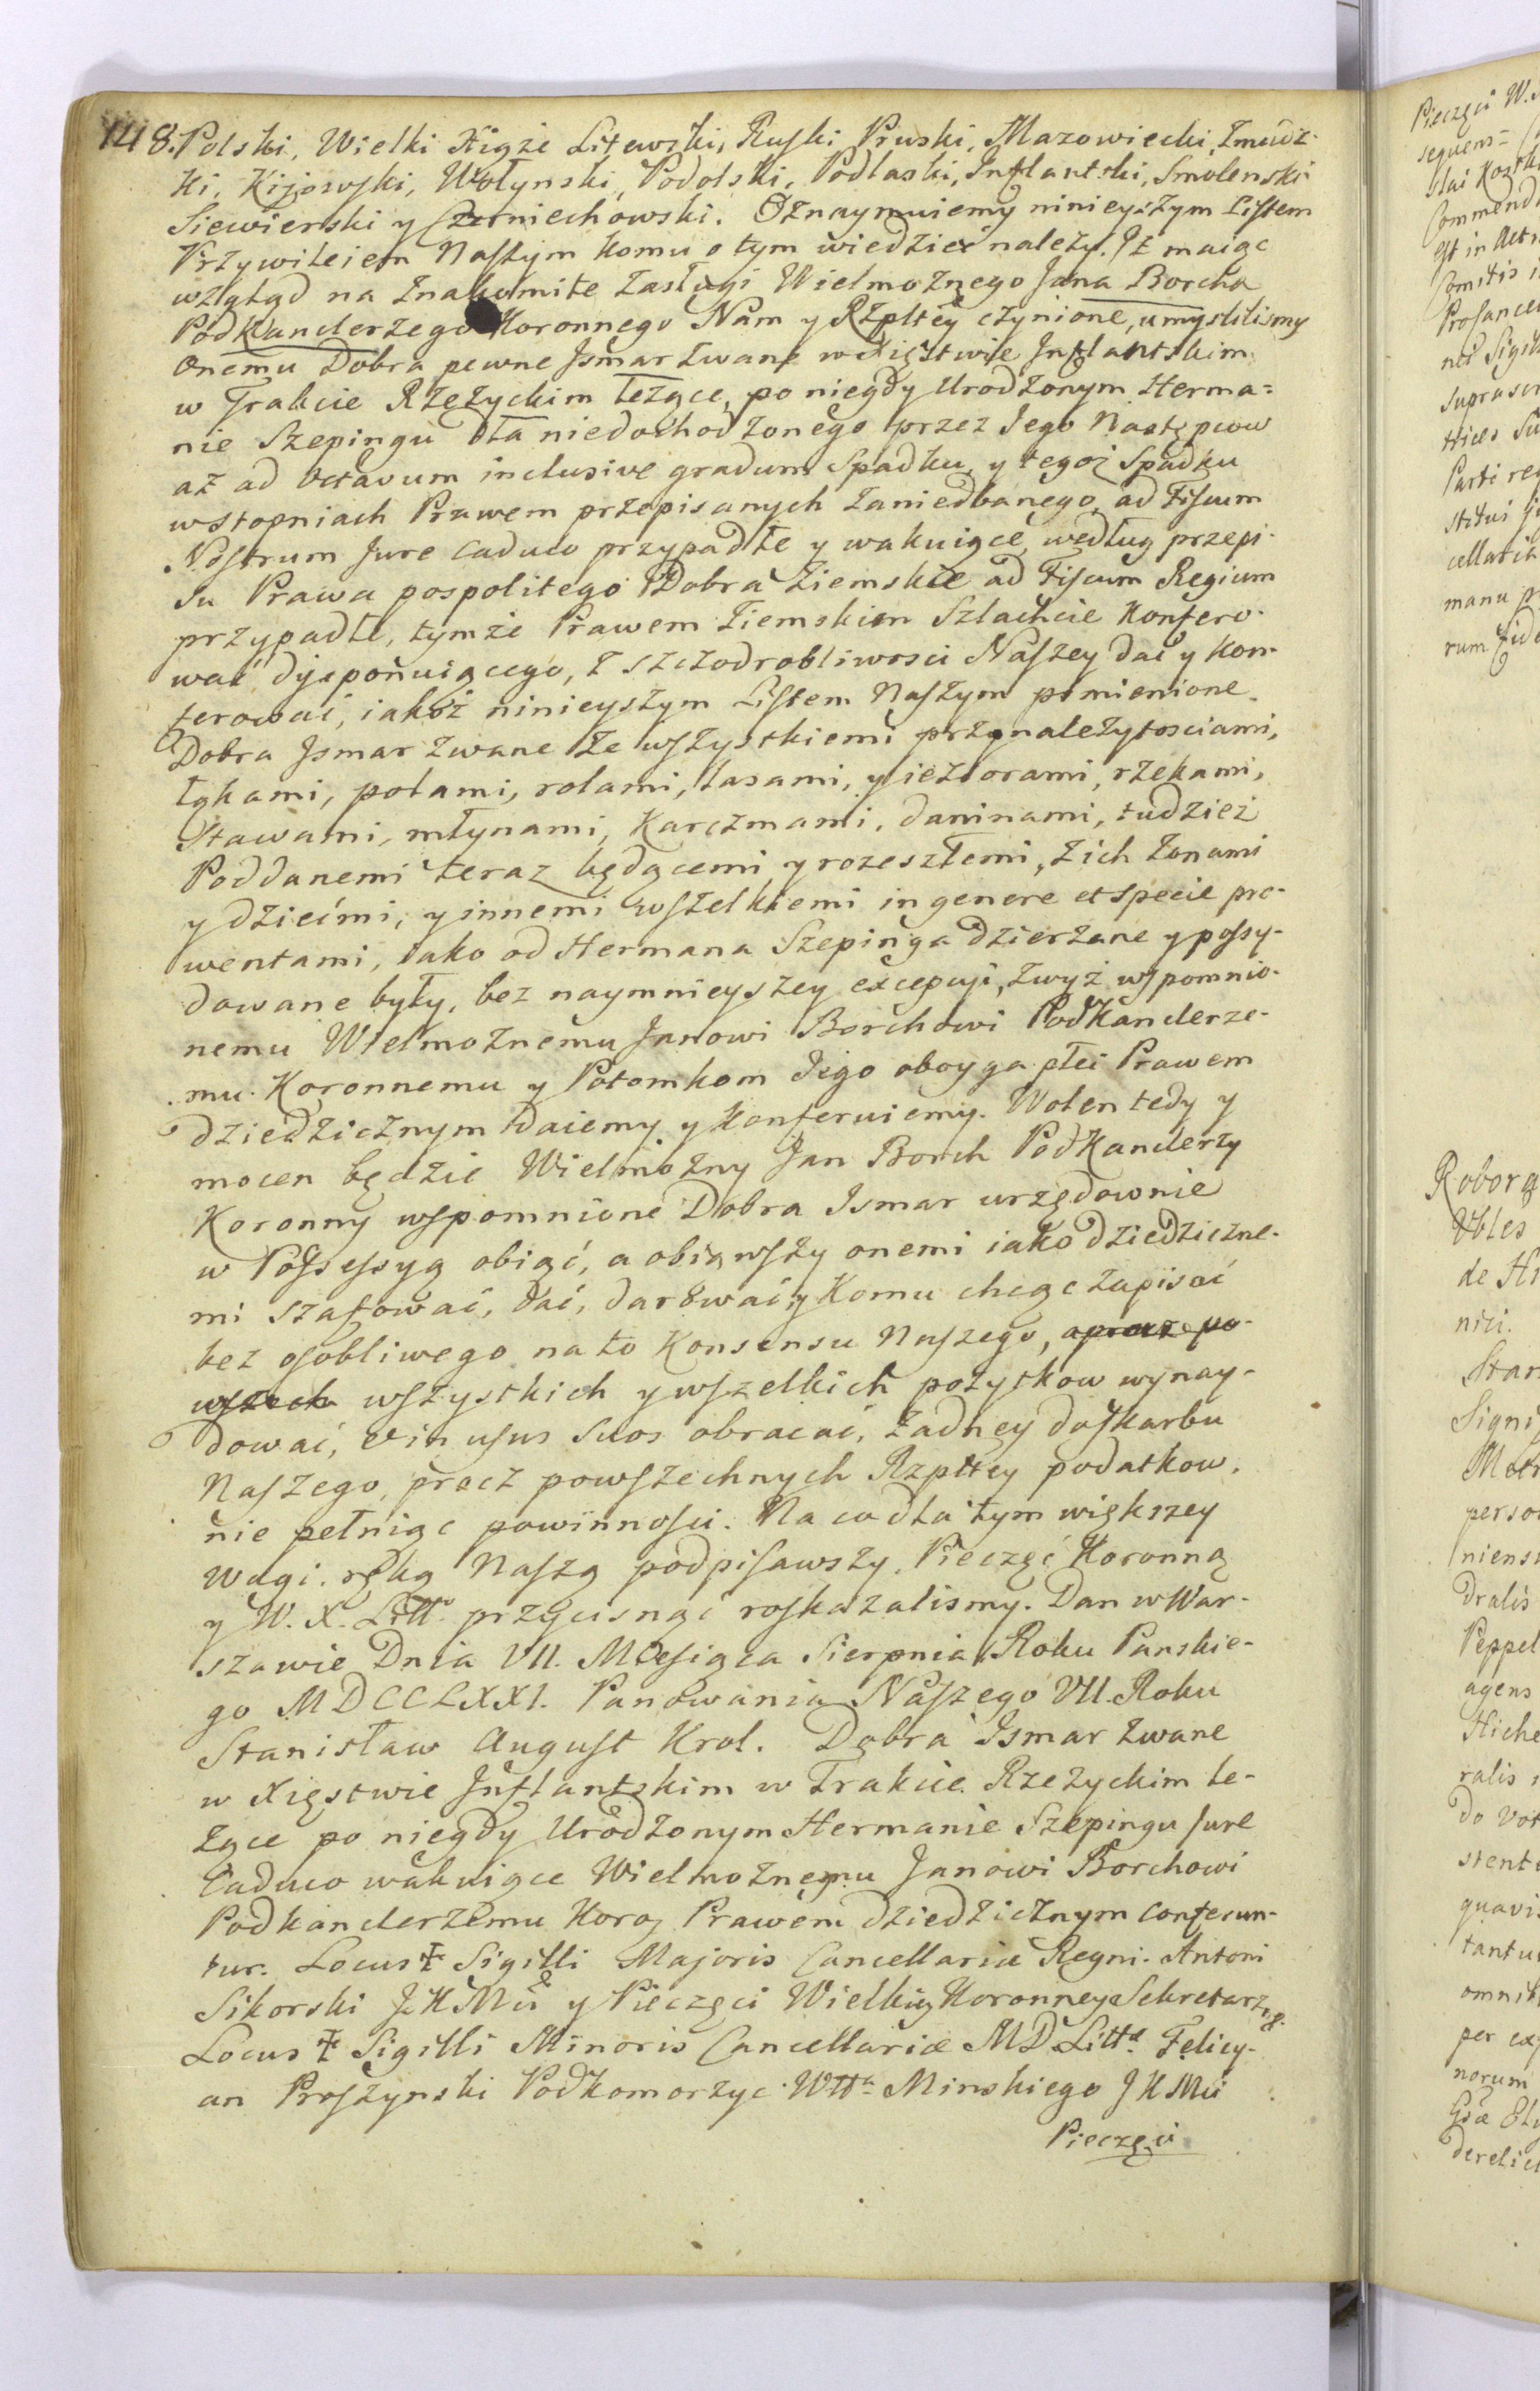 148. Polski, Wielki Xiąże Litewski, Ruski Pruski, Mazowiecki, Żmudz-
ki, Kijowski, Wołynski, Podolski, Podlaski, Inflantski, Smolenski
Siewierski y Czerniechowski. Oznaymuiemy ninieyszym Listem
Przywileiem Naszym komu o tym wiedzieć należy. Iż maiąc
wzgląd na znakomite zasługi Wielmożnego Jana Borcha
Podkanclerzego Koronnego Nam y Rzpltey czynione, umyslilismy
Onemu Dobra pewne Ismar zwane w Xięstwie Inflantskim
w Trakcie Rzeżyckim leżące, po niegdy Urodzonym Herma=
nie Szepingu dla niedochodzonego przez Jego Następcow
aż ad Octavum inclusive gradum Spadku, y tegoż Spadku
w stopniach Prawem przepisanych zaniedbanego, ad Fiscum
Nostrum Jure Caduco przypadłe y wakuiące, według przepi-
su Prawa pospolitego Dobra Ziemskie ad Fiscum Regium
przypadłe, tymże Prawem Ziemskim Szlachcie konfero-
wać dysponuiącego, z szczodrobliwosci Naszey dać y kon-
ferować, iakoż ninieyszym Listem Naszym pomienione
Dobra Ismar zwane ze wszystkiemi przynależytosciami,
łąkami, polami, rolami, lasami, y ieziorami, rzekami,
Stawami, młynami, Karczmami, daninami, tudzież
Poddanemi teraz będącemi y rozeszłemi, z ich żonami
y dziećmi, y innemi wszelkiemi in genere et specie pro-
wentami, iako od Hermana Szepinga dzierżane y possy-
dowane były, bez naymnieyszey excepcyi, zwyż wspomnio-
nemu Wielmożnemu Janowi Borchowi Podkanclerze-
mu Koronnemu y Potomkom Jego oboyga płci Prawem
dziedzicznym daiemy y konferuiemy. Wolen tedy y
mocen będzie Wielmożny Jan Borch Podkanclerzy
Koronny wspomnione Dobra Ismar urzędownie
w Possessyą obiąć, a obiąwszy onemi iako dziedziczne-
mi szafować, dać, darować y komu chcąc zapisać
bez osobliwego na to Konsensu Naszego, oprocz po-
wszech wszystkich y wszelkich pożytkow wynay-
dować, et in usus suos obracać, żadney do skarbu
Naszego, precz powszechnych Rzpltey podatkow,
nie pełniąc powinnosci. Na co dla tym większey
wagi, ręką Naszą podpisawszy, Pieczęć Koronną
y W. X. Litt. przycisnąć roskazalismy. Dan w War-
szawie Dnia VII. Miesiąca Sierpnia Roku Panskie-
go MDCCLXXI. Panowania Naszego VII. Roku
Stanisław August Krol. Dobra Ismar zwane
w Xięstwie Inflantskim w Trakcie Rzeżyckim le-
żące po niegdy Urodzonym Hermanie Szepingu Jure
Caduco wakuiące Wielmożnemu Janowi Borchowi
Podkanclerzemu Koroz Prawem dziedzicznym conferun-
tur. Locus ‡ Sigilli Majoris Cancellariæ Regni. Antoni
Sikorski JKMci y Pieczęci Wielkiey Koronney Sekretarz
Locus ‡ Sigilli Minoris Cancellariæ MD. Littæ Felicy-
an Proszynski Podkomorzyc Wtta Minskiego JKMci
Pieczęci